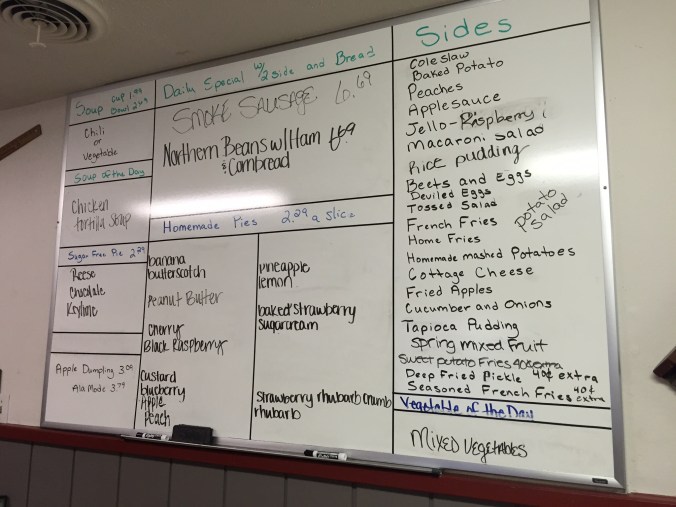 Soup cup 1.99
Bowl 2.49
Chili
or
Vegetable
Soup of the Day
Chicken
Tortilla Soup
Sugar Free Pie 2.29
Reese
Chocolate
Keylime
Apple Dumpling 3.09
Ala Mode 3.79
Daily Special w/ 2 side and Bread
SMOKE SAUSAGE 6.69
Northern Beans w/ Ham
& Cornbread
Homemade Pies 2.29 a slice
banana
butterscotch
Peanut Butter
Cherry
Black Raspberry
Custard
blueberry
Apple
Peach
pineapple
lemon
baked strawberry
sugarcream
Strawberry rhubarb crumb
rhubarb
Sides
Coleslaw
Baked Potato
Peaches
Applesauce
Jello-Raspberry
Macaroni Salad
Rice pudding
Beets and Eggs
Deviled Eggs
Tossed Salad
Potato
Salad
French Fries
Home Fries
Homemade mashed Potatoes
Cottage Cheese
Fried Apples
Cucumber and Onions
Tapioca Pudding
Spring Mixed Fruit
Sweet potato Fries 40¢ extra
Deep Fried Pickle 40¢ extra
Seasoned French Fries 40¢ extra
Vegetable of the Day
Mixed Vegetables